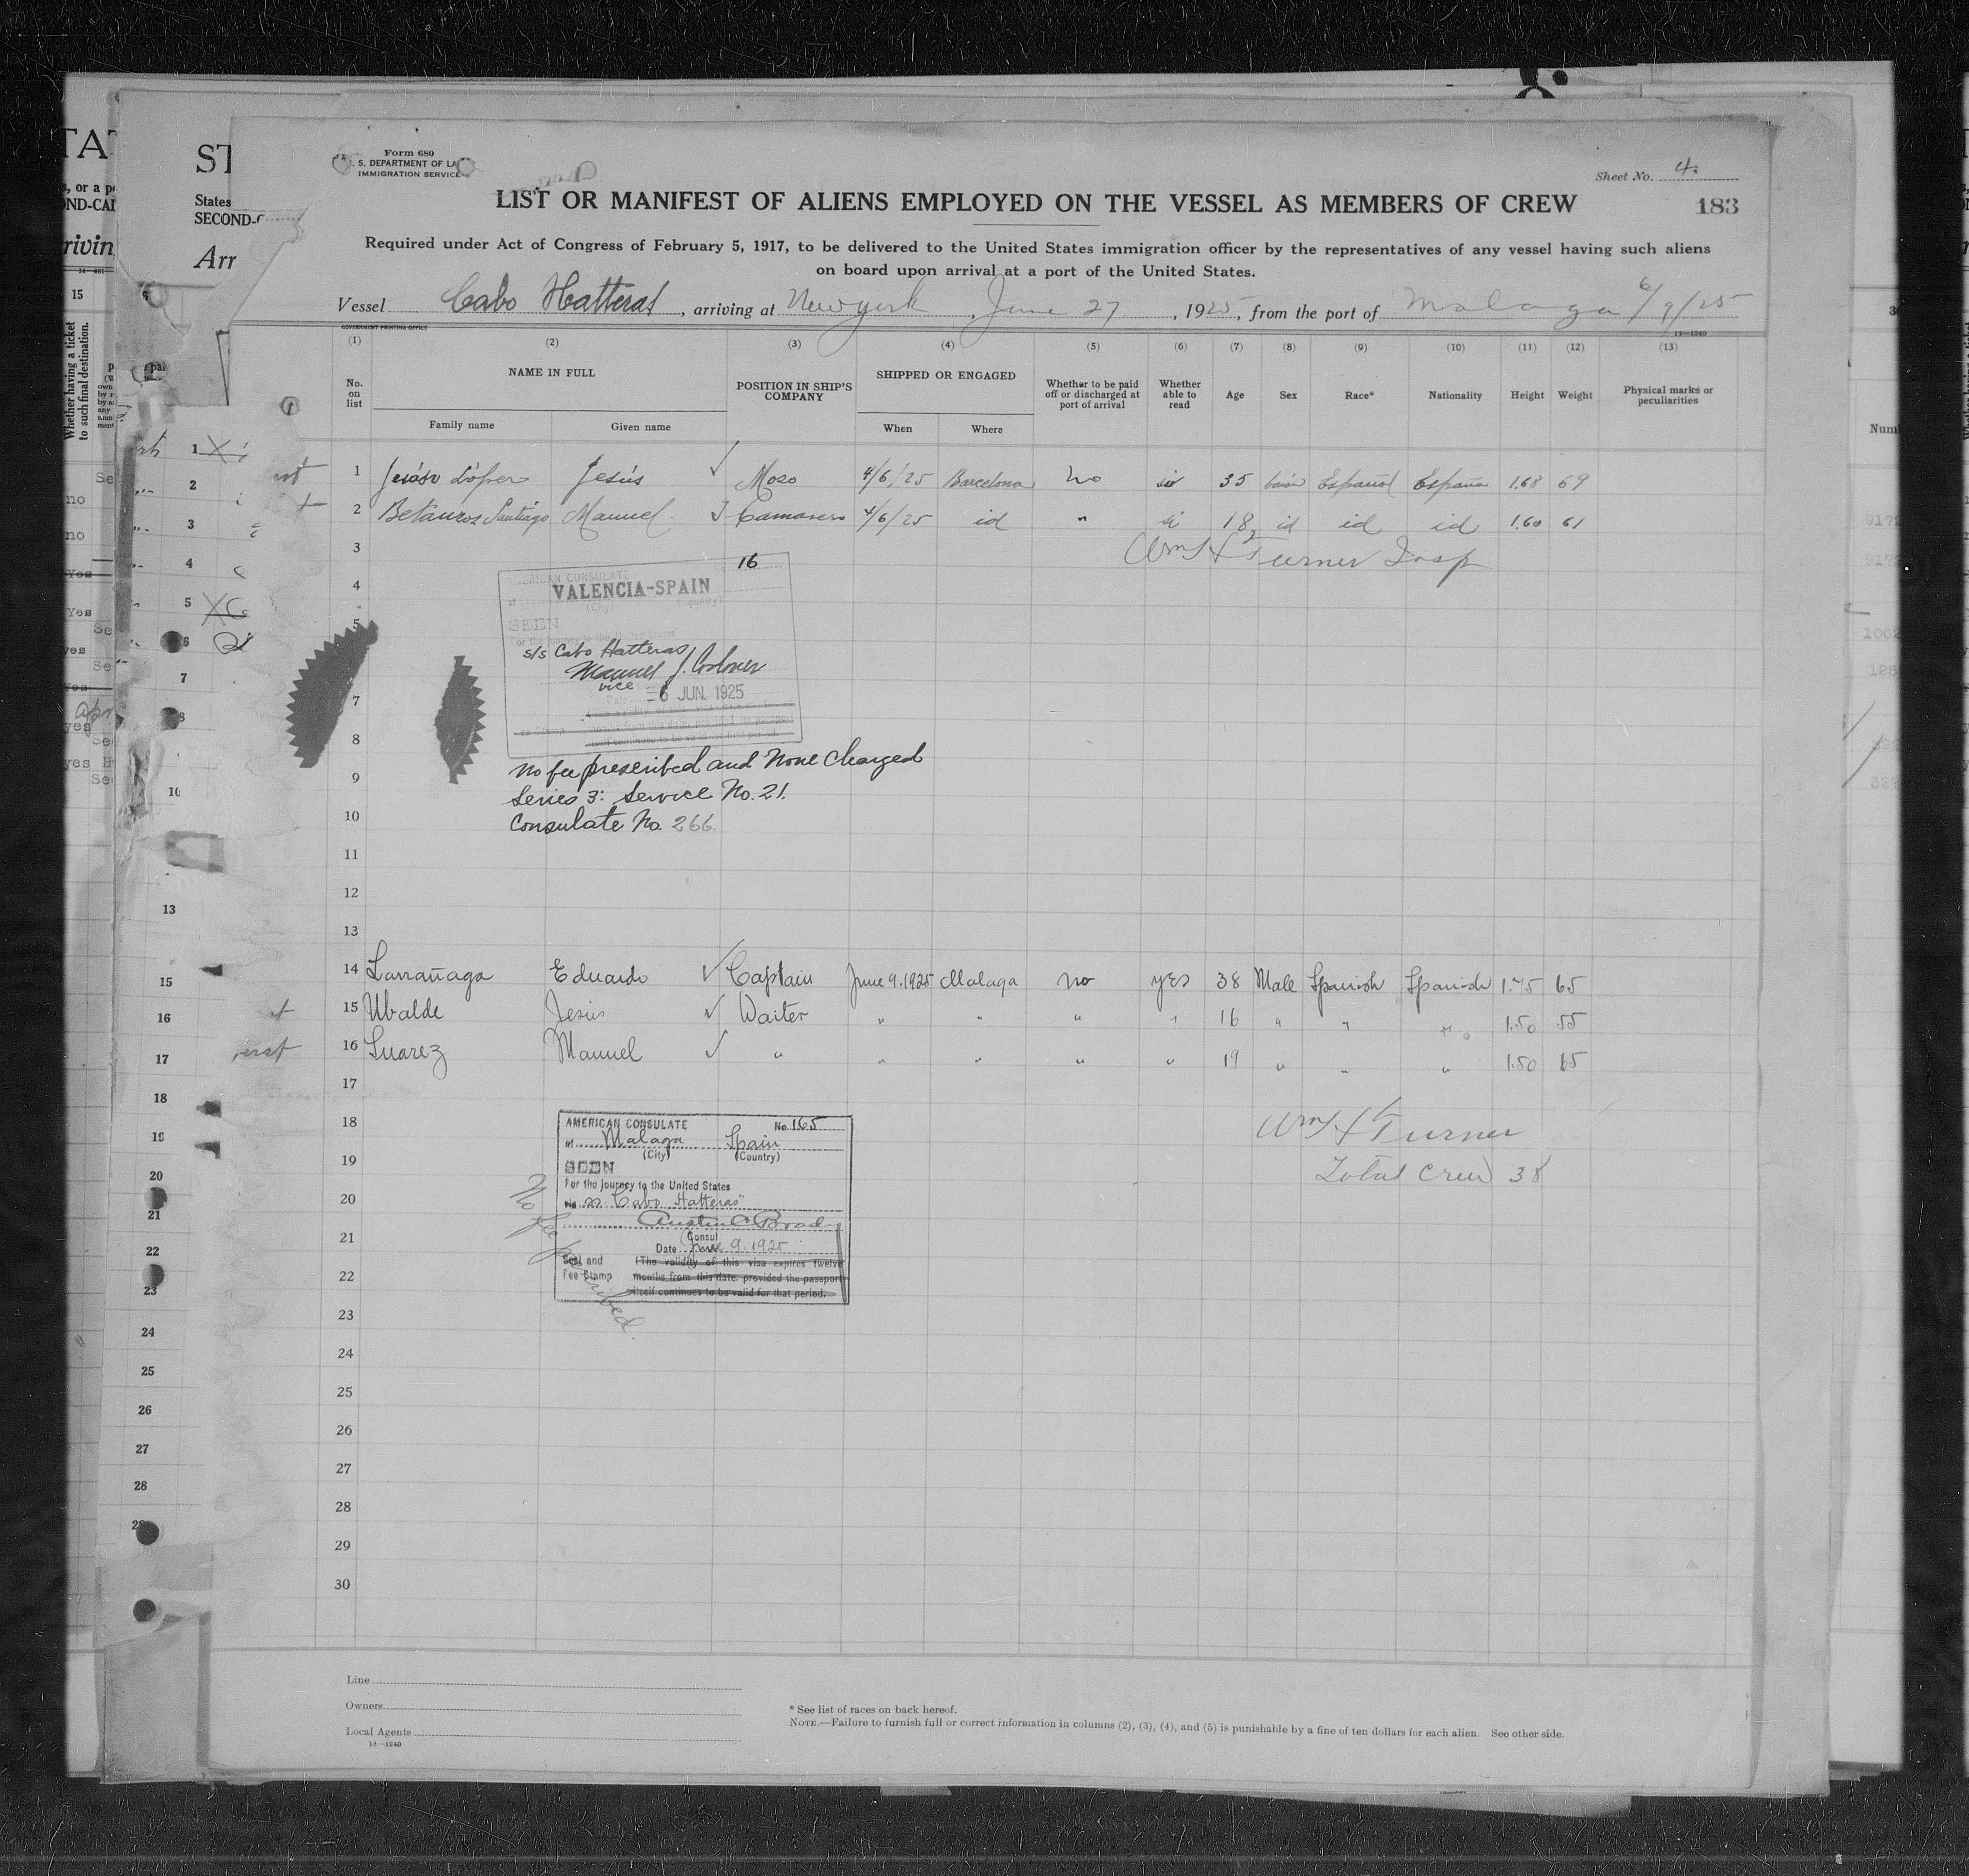 Form 680
S. DEPARTMENT OF LA
IMMIGRATION SERVICE
Sheet No. 4
LIST OR MANIFEST OF ALIENS EMPLOYED ON THE VESSEL AS MEMBERS OF CREW
183
Required under Act of Congress of February 5, 1917, to be delivered to the United States immigration officer by the representatives of any vessel having such aliens
on board upon arrival at a port of the United States.
Vessel Cabo Hatteras, arriving at New york, June 27, 1925, from the port of Malaga 6/9/25
GOVERNMENT PRINTING OFFICE 14—1240
(1) (2) (3) (4) (5) (6) (7) (8) (9) (10) (11) (12) (13)
No. on list NAME IN FULL Family name Given name POSITION IN SHIP'S COMPANY SHIPPED OR ENGAGED When Where Whether to be paid off or discharged at port of arrival Whether able to read Age Sex Race* Nationality Height Weight Physical marks or peculiarities
1 Jesús Moso 4/6/25 Barcelona no 35 Español España 1.68 69
2 Betanzos Santiago Manuel Camarero 4/6/25 id " si 18 id id id 1.60 61
3 Wm H Turner Insp
16
4
AMERICAN CONSULATE
at VALENCIA-SPAIN
(City) (Country)
SEEN
For the journey to the United States
s/s Cabo Hatteras
Manuel J.
vice
Date =6 JUN. 1925
5
6
7
8
9
10
No fee prescribed and none charged
Series 3: Service No. 21.
Consulate No. 266
11
12
13
14 Larrañaga Eduardo Captain June 9.1925 Malaga no yes 38 Male Spanish Spanish 1.45 65
15 Ubalde Jesus Waiter " " " " 16 " " " 1.50 55
16 Suarez Manuel " " " " " 19 " " " 1.50 65
17
18 Wm H Turner
19 Total crew 38
20
21
22
23
24
25
26
27
28
29
30
AMERICAN CONSULATE No 165
at Malaga Spain
(City) (Country)
SEEN
For the journey to the United States
via ss. "Cabo Hatteras"
Austin C Brady
Consul
Date June 9. 1925
Seal and (The validity of this visa expires twelve
Fee Stamp months from this date, provided the passport
itself continues to be valid for that period.
No fee prescribed.
Line
Owners
Local Agents
14—1240
* See list of races on back hereof.
NOTE.—Failure to furnish full or correct information in columns (2), (3), (4), and (5) is punishable by a fine of ten dollars for each alien. See other side.